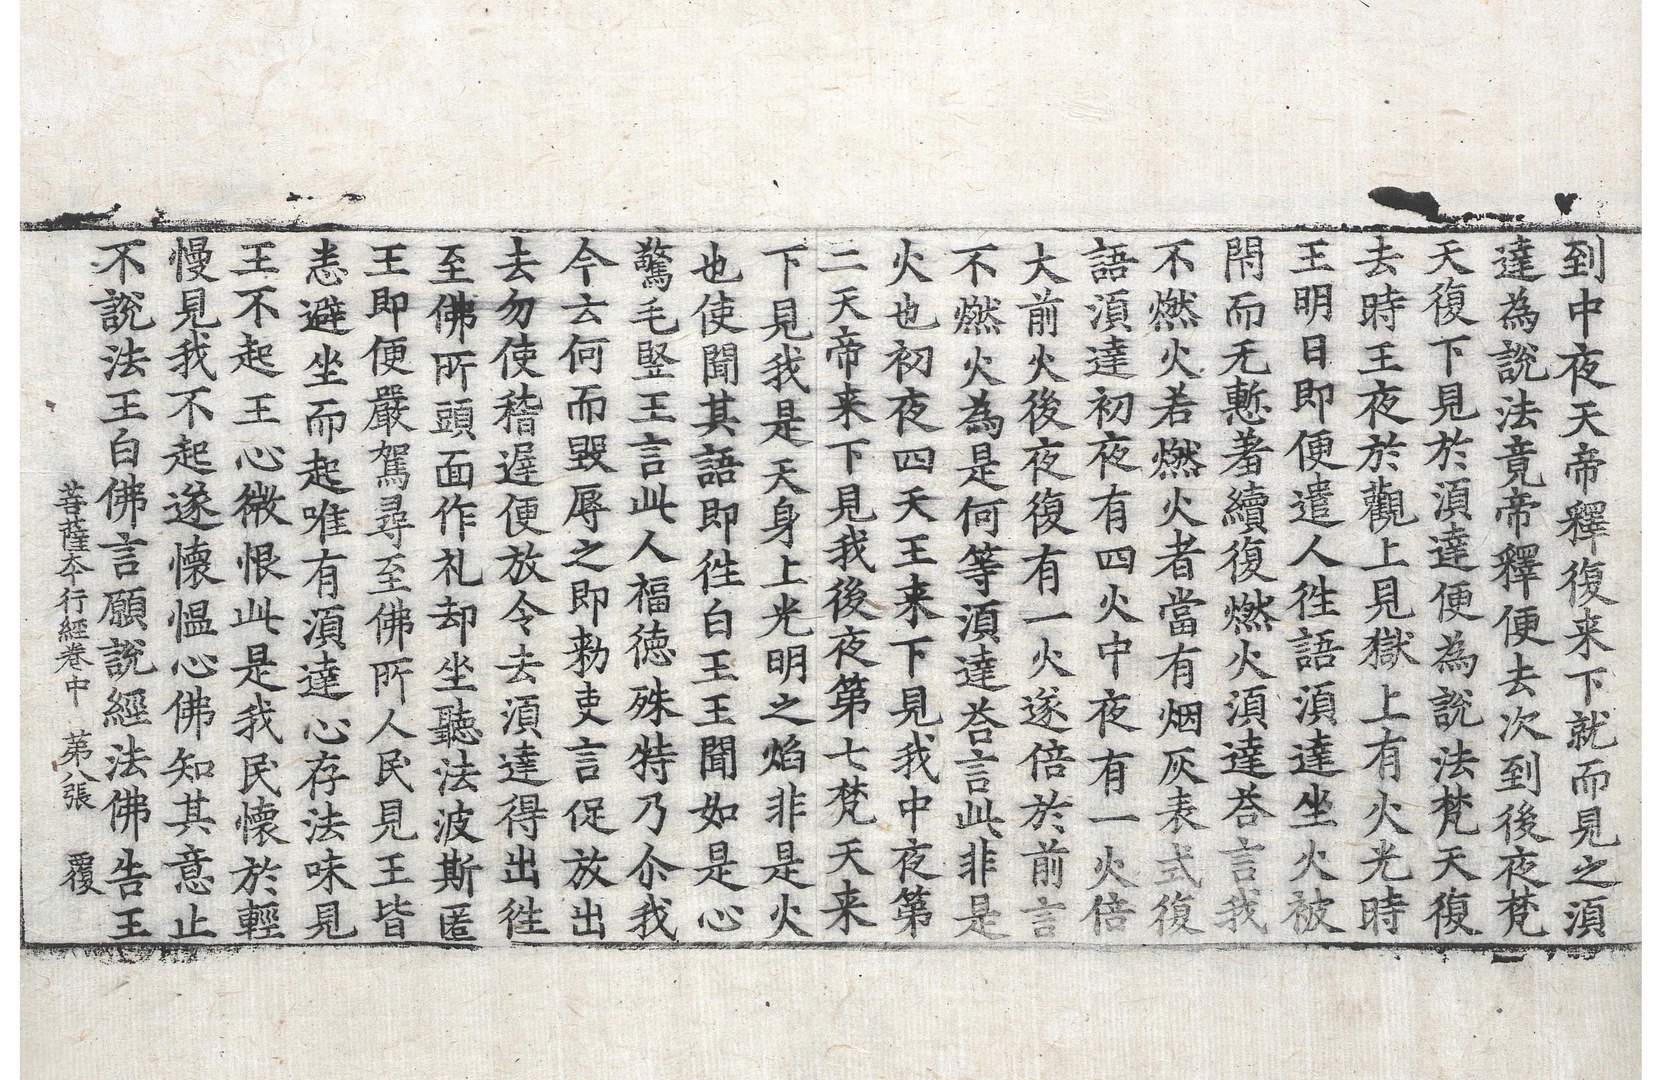 到中夜天帝釋復来下就而見之湏
達為說法竟帝釋便去次到後夜梵
天復下見於湏達便為說法梵天復
去時王夜於觀上見獄上有火光時
王明日即便遣人徃語湏達坐火被
閇而无慙羞續復燃火湏達荅言我
不燃火若燃火者當有烟灰表式復
語湏達初夜有四火中夜有一火倍
大前火後夜復有一火遂倍於前言
不燃火為是何等湏達荅言此非是
火也初夜四天王来下見我中夜第
二天帝来下見我後夜第七梵天来
下見我是天身上光明之焰非是火
也使聞其語即徃白王王聞如是心
驚毛竪王言此人福徳殊特乃尒我
今云何而毀辱之即勑吏言促放出
去勿使稽遲便放令去湏達得出徃
至佛所頭面作礼却坐聽法波斯匿
王即便嚴駕尋至佛所人民見王皆
悉避坐而起唯有湏達心存法味見
王不起王心微恨此是我民懷於輕
慢見我不起遂懷愠心佛知其意止
不說法王白佛言願說經法佛告王
菩薩夲行經卷中 第八張 覆